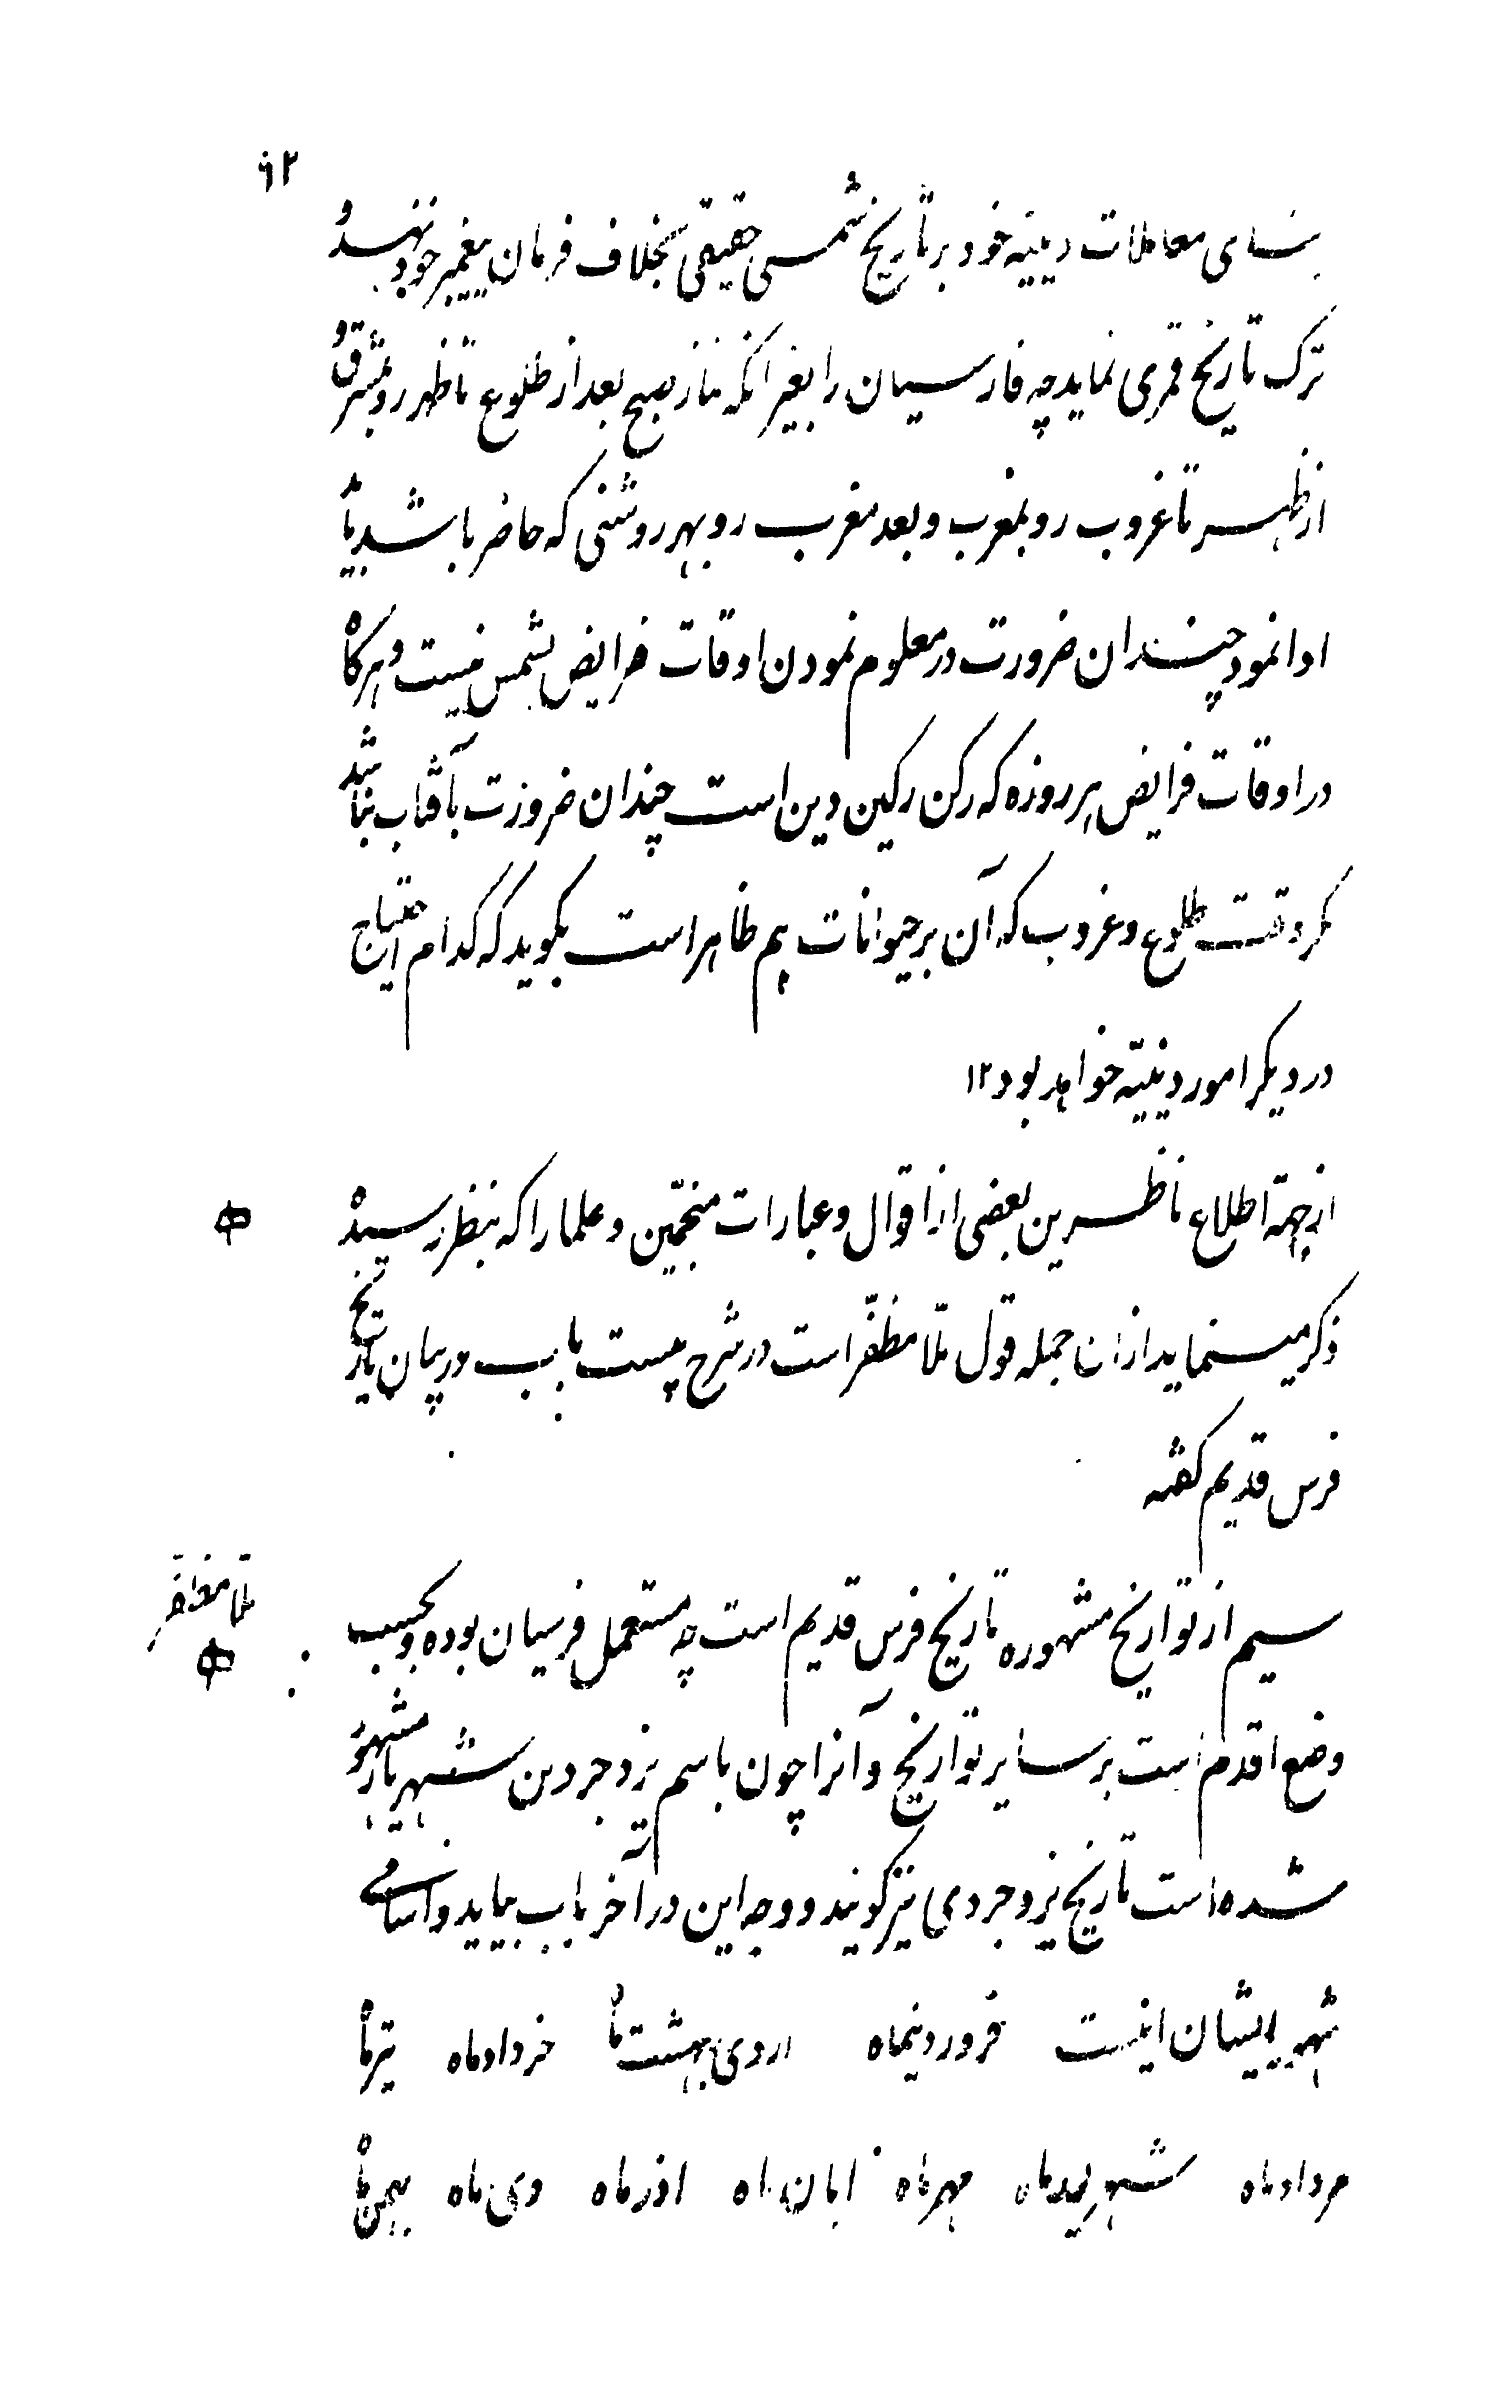 ۹۲
بنای معاملات دینیه خود بر تاریخ شمسی حقیقی بخلاف فرمان پیغمبر خود نهد و
ترک تاریخ قمری نماید چه فارسیان را بغیر انکه نماز صبح بعد از طلوع تا ظهر رو بمشرق و
از ظهر تا غروب رو بمغرب و بعد مغرب رو بهر روشنی که حاضر باشد
ادا نمود چندان ضرورت در معلوم نمودن اوقات فرایض بشمس نیست و هرکاه
در اوقات فرایض هر روزه که رکن رکین دین است چندان ضرورت بآفتاب نباشد
مکر وقت طلوع و غروب که آن بر حیوانات هم ظاهر است بکوید که کدام احتیاج
در دیکر امور دینیه خواهد بود ۱۲
از جهة اطلاع ناظرین بعضی از اقوال و عبارات منجّمین و علما را که بنظر رسیده
ذکر مینماید ازان جمله قول ملّا مظفّر است در شرح بیست باب در بیان تاریخ
فرس قدیم کفته
ملّا مظفّر
سیم از تواریخ مشهوره تاریخ فرس قدیم است چه مستعمل فرسیان بوده و بحسب
وضع اقدم است بر سایر تواریخ و آنرا چون باسم یزدجرد بن شهریار مشهور
شده است تاریخ یزدجردی نیز کویند و وجه این در آخر باب بیاید و اسامی
شهور ایشان اینست فروردینماه اردی بهشت ماه خردادماه تیرماه
مردادماه شهریورماه مهرماه ابان ماه اذرماه دی ماه بهمن ماه